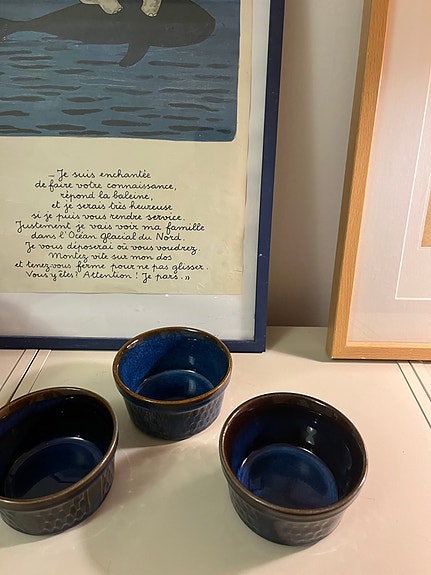 — Je suis enchantée
de faire votre connaissance,
répond la baleine,
et je serais très heureuse
si je puis vous rendre service.
Justement je vais voir ma famille
dans l'Océan Glacial du Nord.
Je vous déposerai où vous voudrez.
Montez vite sur mon dos
et tenez-vous ferme pour ne pas glisser.
Vous y êtes? Attention! Je pars.»